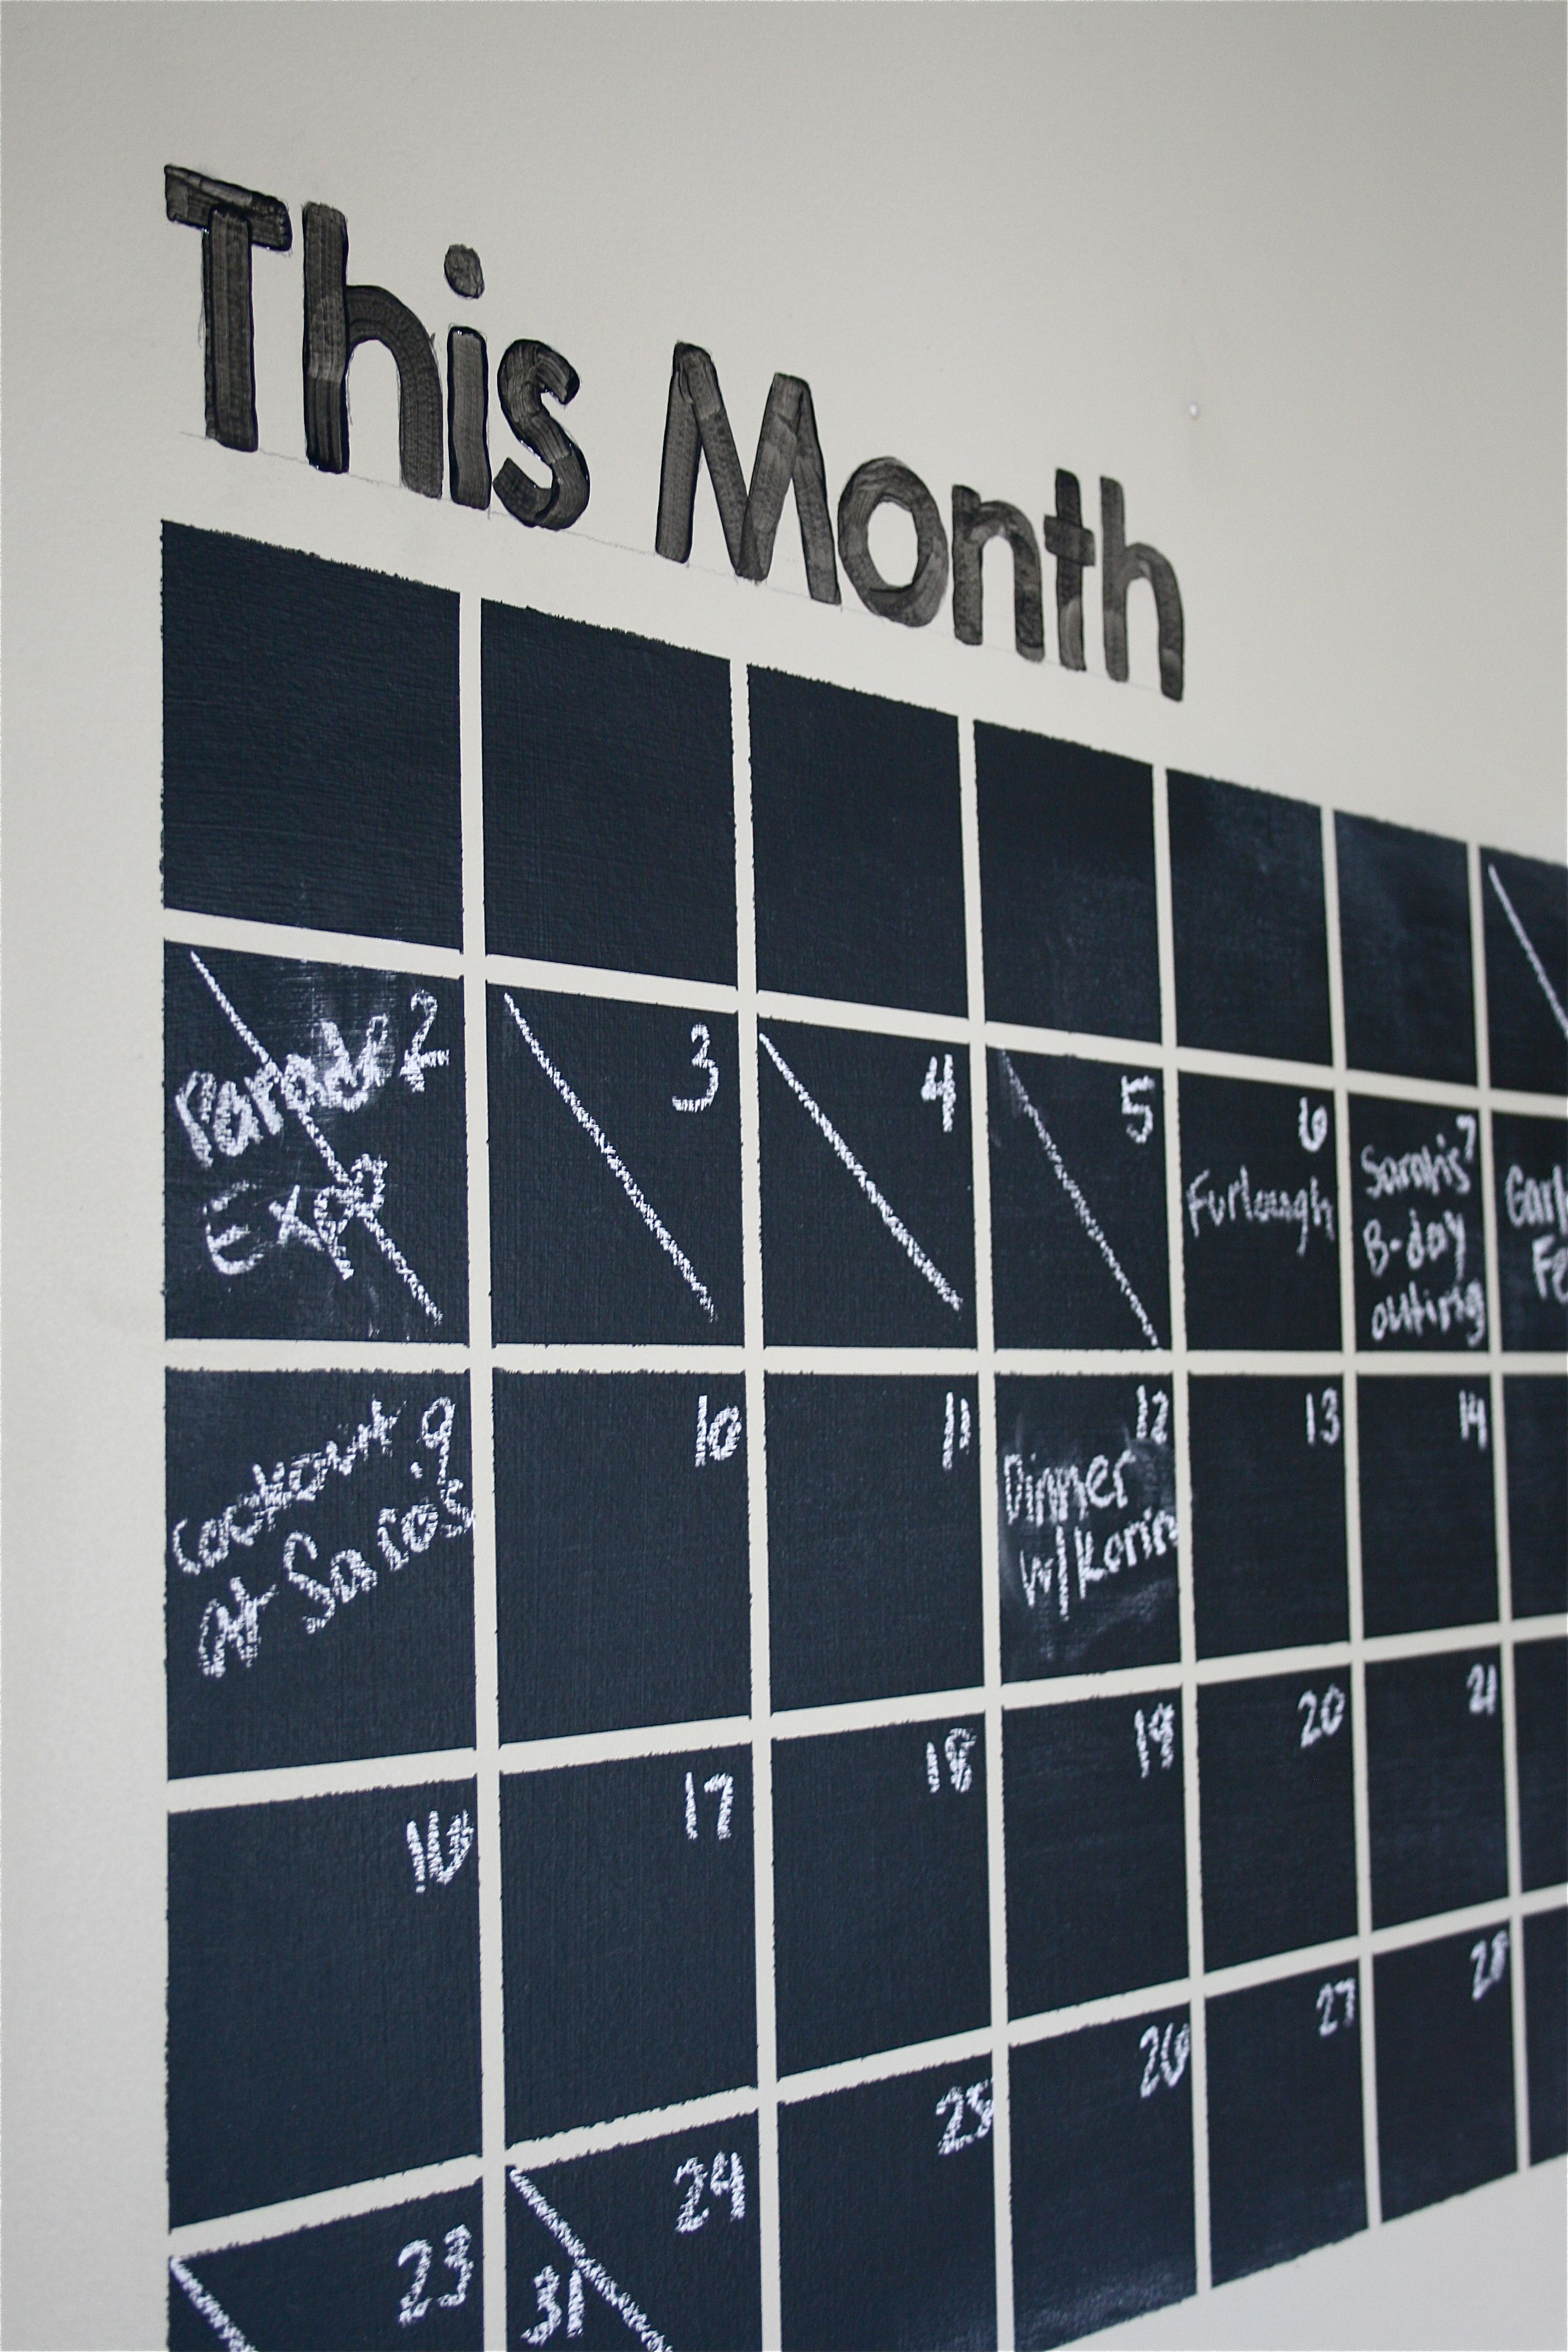 This Month
2
Parade
Expo
3
4
5
6
Furlough
7
Sarah's
B-day
outing
9
Cookout
at Salo's
10
11
12
Dinner
w/Karin
13
14
16
17
18
19
20
21
23
24
31
25
26
27
28